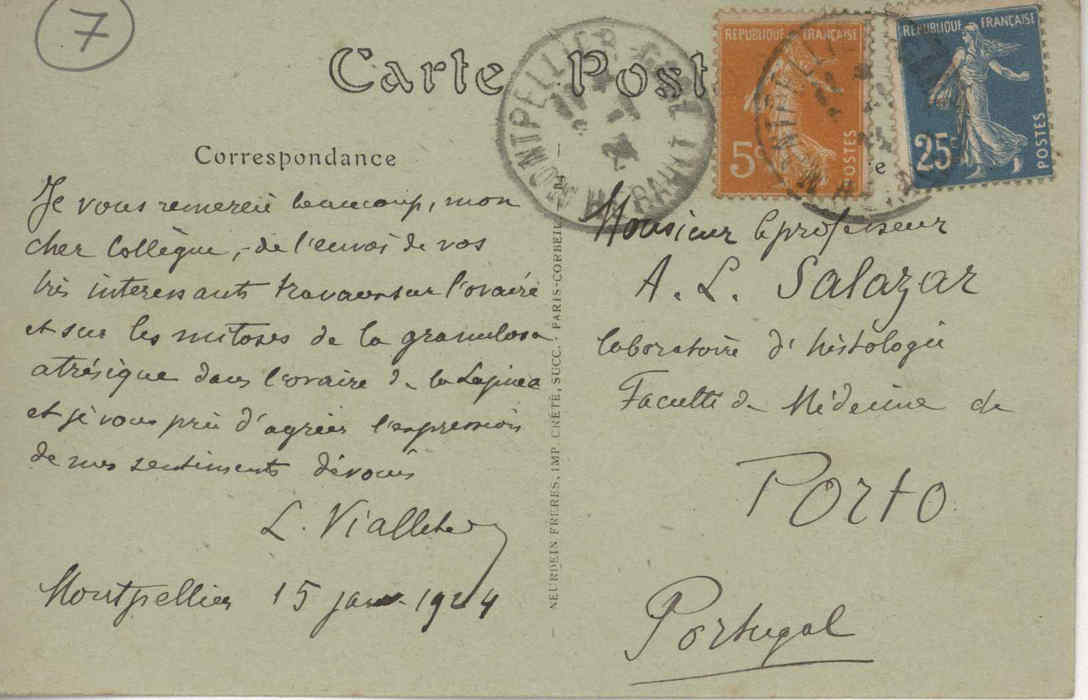 7
Carte Post
MONTPELLIER-GARE
HERAULT
REPUBLIQUE FRANÇAISE
5c
POSTES
REPUBLIQUE FRANÇAISE
25c
POSTES
Correspondance
Je vous remercie beaucoup, mon
cher Collègue, de l'envoi de vos
très interessants travaux sur l'ovaire
et sur les mitoses de la granulosa
atrésique dans l'ovaire de la Lapine
et je vous prie d'agréer l'expression
de mes sentiments dévoués
L. Vialleton
Montpellier 15 janv 1924
NEURDEIN FRÈRES, IMP. CRÉTÉ, SUCC. - PARIS-CORBEIL
Monsieur le professeur
A. L. Salazar
laboratoire d'histologie
Faculté de Médecine de
Porto
Portugal